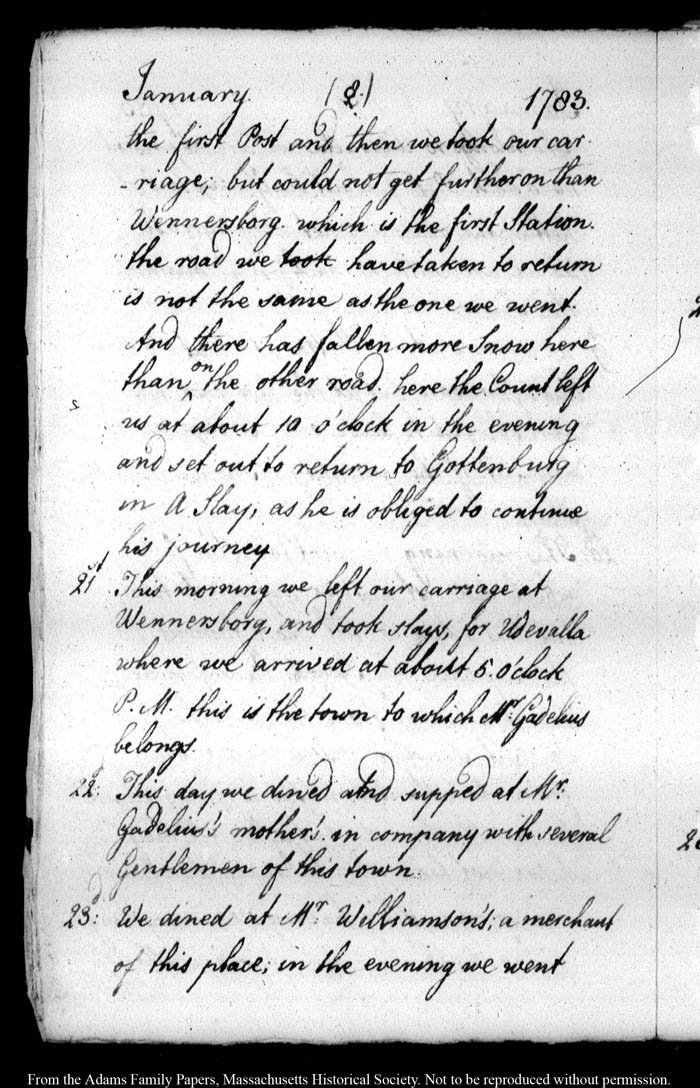 January. (8.) 1783.
the first Post and then we took our car-
-riage; but could not get further on than
Wennersborg. which is the first Station.
the road we took have taken to return
is not the same as the one we went.
And there has fallen more Snow here
than on the other road. here the Count left
us at about 10 o'clock in the evening
and set out to return to Gottenburg
in A Slay, as he is obliged to continue
his journey
21st This morning we left our carriage at
Wennersborg, and took slays, for Udevalla
where we arrived at about 5. o'clock
P. M. this is the town to which Mr. Gadelius
belongs.
22d: This day we dined and supped at Mr.
Gadelius's mother's. in company with several
Gentlemen of this town.
23d: We dined at Mr. Williamson's; a merchant
of this place; in the evening we went
From the Adams Family Papers, Massachusetts Historical Society. Not to be reproduced without permission.